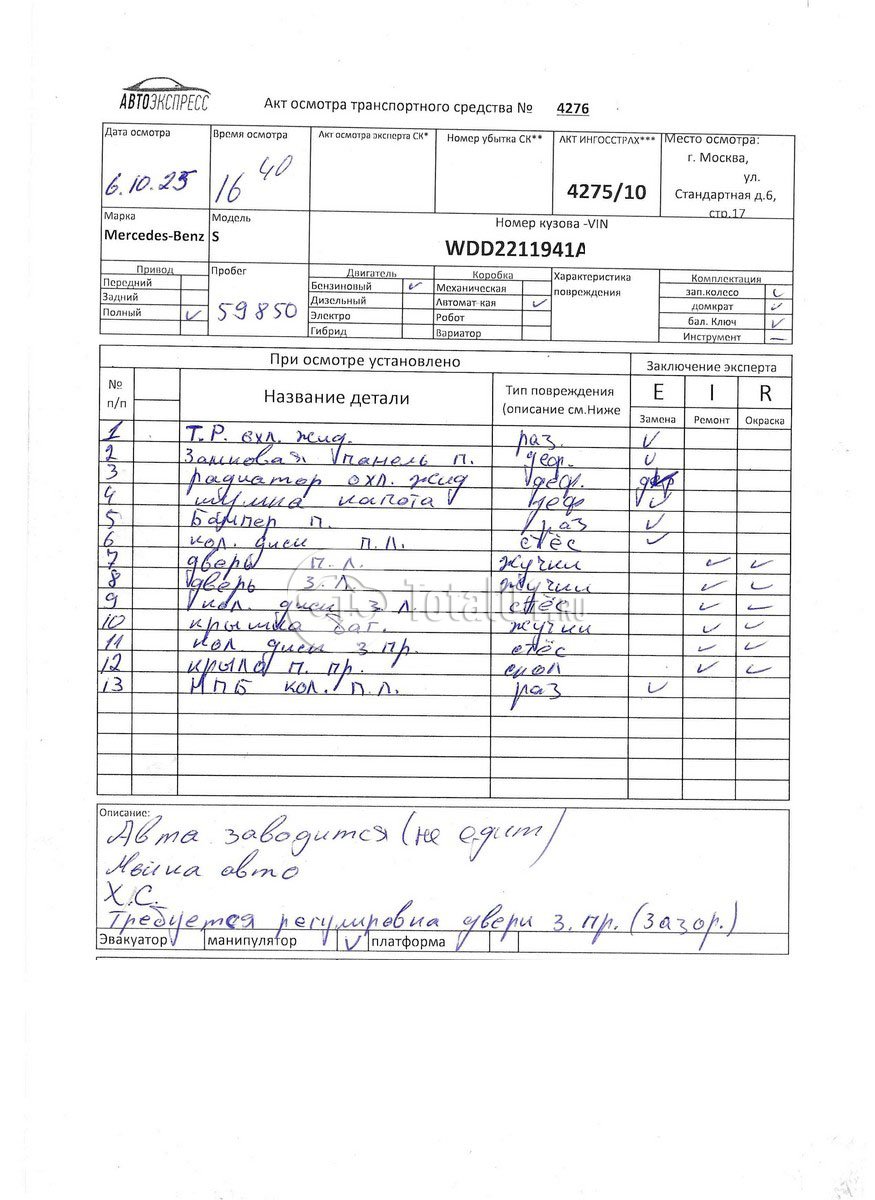 АВТОЭКСПРЕСС
Акт осмотра транспортного средства № 4276
Дата осмотра Время осмотра Акт осмотра эксперта СК* Номер убытка СК** АКТ ИНГОССТРАХ*** Место осмотра:
6.10.25 16 40 4275/10 г. Москва,
ул.
Стандартная д.6,
стр.17
Марка Модель Номер кузова -VIN
Mercedes-Benz S WDD2211941A
Привод Пробег Двигатель Коробка Характеристика повреждения Комплектация
Передний Бензиновый ✓ Механическая зап.колесо ✓
Задний 59850 Дизельный Автомат-кая ✓ домкрат ✓
Полный ✓ Электро Робот бал. Ключ ✓
Гибрид Вариатор Инструмент —
При осмотре установлено Заключение эксперта
№ п/п Название детали Тип повреждения (описание см.Ниже E I R
Замена Ремонт Окраска
1 Т.Р. охл. жид. раз. ✓
2 Замковая панель п. деф. ✓
3 радиатор охл. жид деф.
4 шумка капота деф ✓
5 Бампер п. раз ✓
6 кол. диск п.л. стёс ✓
7 дверь п.л. жучки ✓ ✓
8 дверь з.л. жучки ✓ ✓
9 кол. диск з л. стёс ✓ ✓
10 крышка баг. жучки ✓ ✓
11 кол диск з пр. стёс ✓ ✓
12 крыло п. пр. скол ✓ ✓
13 НПБ кол. п.л. раз ✓
TotalCar.RU
Описание:
Авта заводится (не едит)
Мойка авто
Х.С.
Требуется регулировка двери з.пр. (зазор.)
Эвакуатор манипулятор ✓ платформа